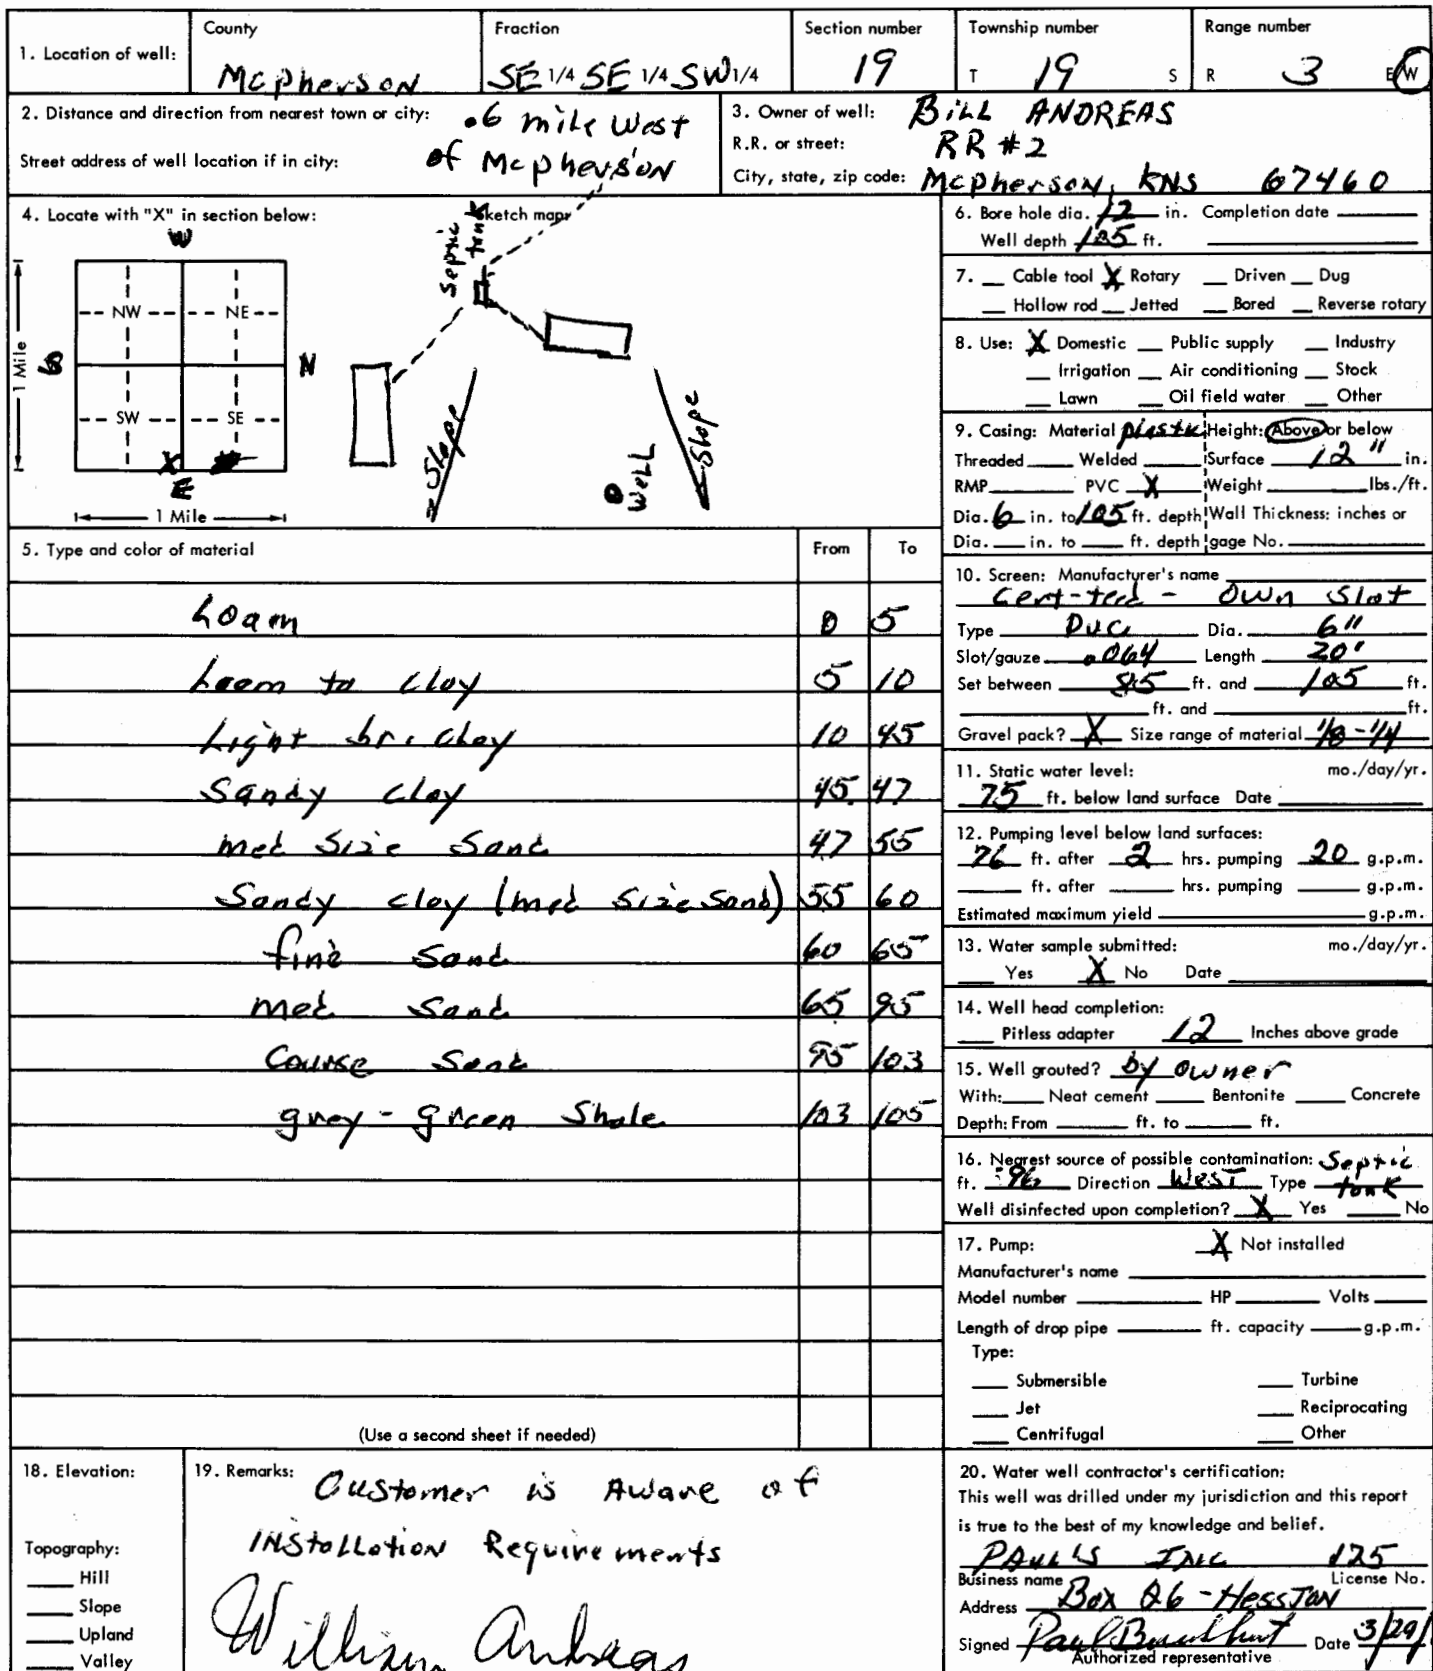 1. Location of well: County McPherson Fraction SE 1/4 SE 1/4 SW 1/4 Section number 19 Township number T 19 S Range number R 3 E/W
2. Distance and direction from nearest town or city: .6 mile West
of McPherson
Street address of well location if in city:
3. Owner of well: BILL ANDREAS
R.R. or street: RR #2
City, state, zip code: McPherson, KNS 67460
4. Locate with "X" in section below:
Sketch map:
W
NW NE
SW SE
S
N
X
E
1 Mile
1 Mile
Septic tank
Slope
WELL
Slope
5. Type and color of material From To
Loam 0 5
Loam to clay 5 10
Light br. clay 10 45
Sandy clay 45 47
med size sand 47 55
Sandy clay (med size sand) 55 60
fine sand 60 65
med sand 65 95
Course sand 95 103
grey-green Shale 103 105
(Use a second sheet if needed)
6. Bore hole dia. 12 in. Completion date
Well depth 105 ft.
7. Cable tool X Rotary Driven Dug
Hollow rod Jetted Bored Reverse rotary
8. Use: X Domestic Public supply Industry
Irrigation Air conditioning Stock
Lawn Oil field water Other
9. Casing: Material plastic Height: Above or below
Threaded Welded Surface 12" in.
RMP PVC X Weight lbs./ft.
Dia. 6 in. to 105 ft. depth Wall Thickness: inches or
Dia. in. to ft. depth gage No.
10. Screen: Manufacturer's name
Cert-teed - Own Slot
Type PVC Dia. 6"
Slot/gauze .064 Length 20'
Set between 85 ft. and 105 ft.
ft. and ft.
Gravel pack? X Size range of material 1/8-1/4
11. Static water level: mo./day/yr.
75 ft. below land surface Date
12. Pumping level below land surfaces:
76 ft. after 2 hrs. pumping 20 g.p.m.
ft. after hrs. pumping g.p.m.
Estimated maximum yield g.p.m.
13. Water sample submitted: mo./day/yr.
Yes X No Date
14. Well head completion:
Pitless adapter 12 Inches above grade
15. Well grouted? by owner
With: Neat cement Bentonite Concrete
Depth: From ft. to ft.
16. Nearest source of possible contamination: Septic
ft. 96 Direction West Type tank
Well disinfected upon completion? X Yes No
17. Pump: X Not installed
Manufacturer's name
Model number HP Volts
Length of drop pipe ft. capacity g.p.m.
Type:
Submersible Turbine
Jet Reciprocating
Centrifugal Other
18. Elevation:
Topography:
Hill
Slope
Upland
Valley
19. Remarks: Customer is Aware of
INStallation Requirements
William Andreas
20. Water well contractor's certification:
This well was drilled under my jurisdiction and this report
is true to the best of my knowledge and belief.
PAULS INC 175
Business name License No.
Address Box 26 - HESSTON
Signed Paul Date 3/29/
Authorized representative